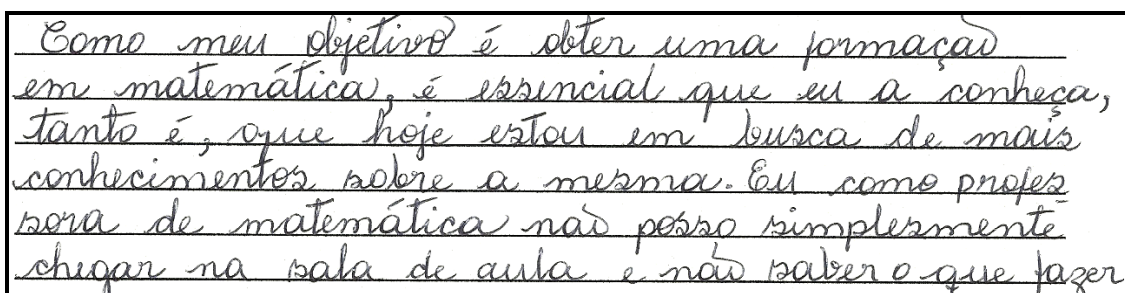 Como meu objetivo é obter uma formação
em matemática, é essencial que eu a conheça,
tanto é, que hoje estou em busca de mais
conhecimentos sobre a mesma. Eu como profes
sora de matemática não posso simplesmente
chegar na sala de aula e não saber o que fazer